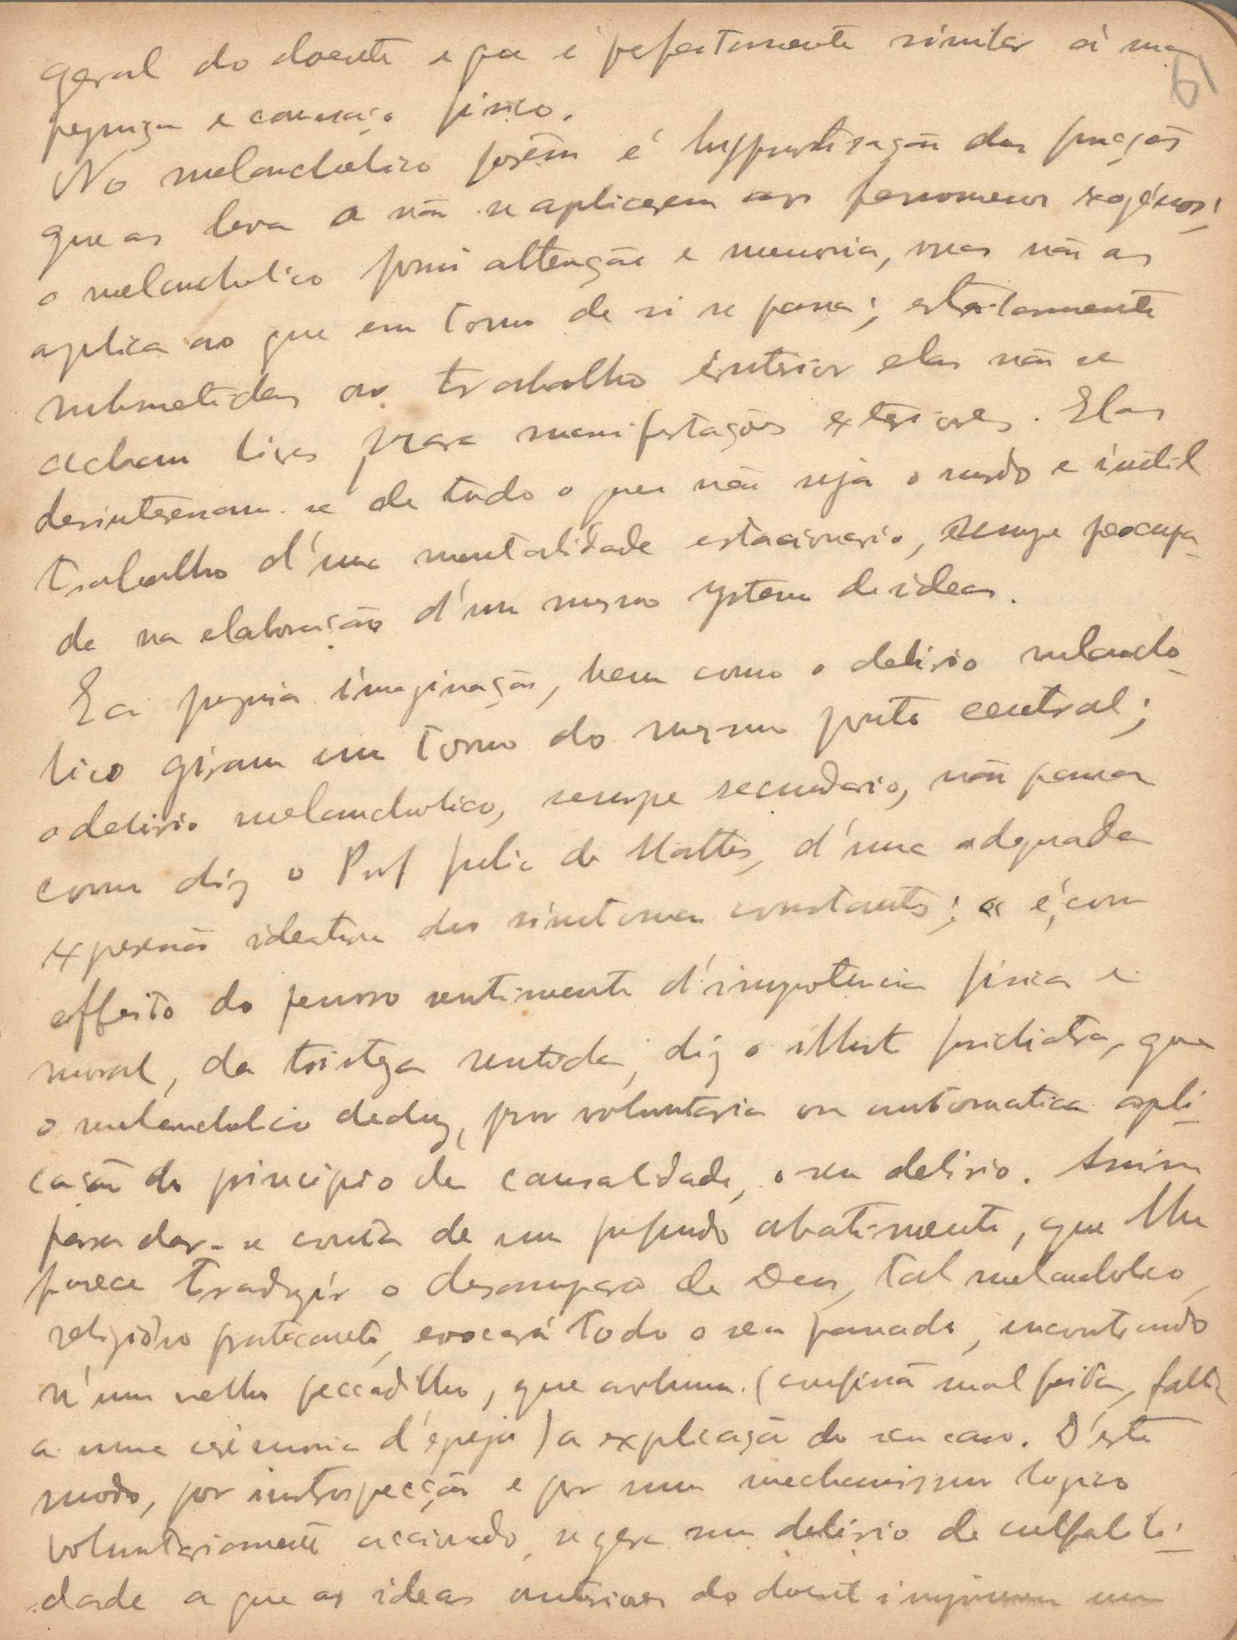 geral do doente e que é perfeitamente similar á sua
6
preguiça e cansaço fisico.
No melancholico porém é hypnotisação das funções
que as leva a não se aplicarem aos fenomenos exogénos;
o melancholico possui attenção e memoria, mas não as
aplica ao que em torno de si se passa; estrictamente
submetidas ao trabalho interior elas não se
acham livres para manifestações exteriores. Elas
desinteressam-se de tudo o que não seja o surdo e inutil
trabalho d'uma mentalidade estacionaria, sempre preocupa-
da na elaboração d'um mesmo systema de ideas.
E a propria imaginação, bem como o delirio melancho-
lico giram em torno do mesmo ponto central;
o delirio melancholico, sempre secundario, não passa
como diz o Prof Julio de Mattos, d'uma adequada
expressão ideativa dos sintomas constantes; é, com
effeito do penoso sentimento d'impotencia fisica e
moral, da tristeza sentida, diz o illustre psichiatra, que
o melancholico deduz, por voluntaria ou automatica apli-
cação do principio da causalidade, o seu delirio. Assim
para dar-se conta de um profundo abatimento, que lhe
parece traduzir o desamparo de Deus, tal melancholico,
religioso praticante, evocará todo o seu passado, encontrando
n'um velho peccadilho, que avoluma (confissão mal feita, falta
a uma cerimonia d'egreja) a explicação do seu caso. D'este
modo, por introspecção e por um mechanismo logico
voluntariamente accionado, se gera um delirio de culpabili-
dade a que as ideas anteriores do doente imprimem um